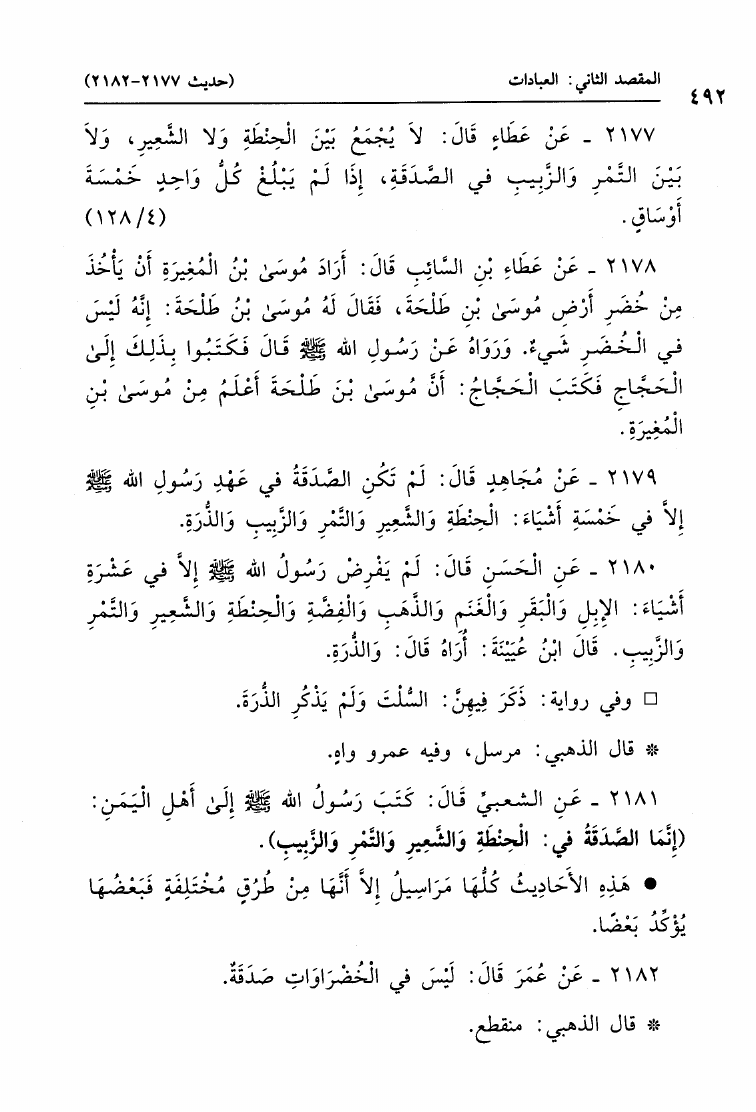 المقصد الثاني: العبادات (حديث ٢١٧٧-٢١٨٢)
٤٩٢
٢١٧٧ ـ عَنْ عَطَاءٍ قَالَ: لاَ يُجْمَعُ بَيْنَ الْحِنْطَةِ وَلا الشَّعِيرِ، وَلاَ
بَيْنَ التَّمْرِ وَالزَّبِيبِ في الصَّدَقَةِ، إِذَا لَمْ يَبْلُغْ كُلُّ وَاحِدٍ خَمْسَةَ
أَوْسَاقٍ. (١٢٨/٤)
٢١٧٨ ـ عَنْ عَطَاءِ بْنِ السَّائِبِ قَالَ: أَرَادَ مُوسَىٰ بْنُ الْمُغِيرَةِ أَنْ يَأْخُذَ
مِنْ خُضَرِ أَرْضِ مُوسَىٰ بْنِ طَلْحَةَ، فَقَالَ لَهُ مُوسَىٰ بْنُ طَلْحَةَ: إِنَّهُ لَيْسَ
في الْخُضَرِ شَيءٌ. وَرَوَاهُ عَنْ رَسُولِ الله ﷺ قَالَ فَكَتَبُوا بِذَلِكَ إِلَىٰ
الْحَجَّاجِ فَكَتَبَ الْحَجَّاجُ: أَنَّ مُوسَىٰ بْنَ طَلْحَةَ أَعْلَمُ مِنْ مُوسَىٰ بْنِ
الْمُغِيرَةِ.
٢١٧٩ ـ عَنْ مُجَاهِدٍ قَالَ: لَمْ تَكُنِ الصَّدَقَةُ في عَهْدِ رَسُولِ الله ﷺ
إِلاَّ في خَمْسَةِ أَشْيَاءَ: الْحِنْطَةِ وَالشَّعِيرِ وَالتَّمْرِ وَالزَّبِيبِ وَالذُّرَةِ.
٢١٨٠ ـ عَنِ الْحَسَنِ قَالَ: لَمْ يَفْرِضْ رَسُولُ الله ﷺ إِلاَّ في عَشْرَةِ
أَشْيَاءَ: الإِبِلِ وَالْبَقَرِ وَالْغَنَمِ وَالذَّهَبِ وَالْفِضَّةِ وَالْحِنْطَةِ وَالشَّعِيرِ وَالتَّمْرِ
وَالزَّبِيبِ. قَالَ ابْنُ عُيَيْنَةَ: أُرَاهُ قَالَ: وَالذُّرَةِ.
□ وفي رواية: ذَكَرَ فِيهِنَّ: السُّلْتَ وَلَمْ يَذْكُرِ الذُّرَةَ.
* قال الذهبي: مرسل، وفيه عمرو واهٍ.
٢١٨١ ـ عَنِ الشعبيِّ قَالَ: كَتَبَ رَسُولُ الله ﷺ إِلَىٰ أَهْلِ الْيَمَنِ:
(إِنَّمَا الصَّدَقَةُ في: الْحِنْطَةِ وَالشَّعِيرِ وَالتَّمْرِ وَالزَّبِيبِ).
● هَذِهِ الأَحَادِيثُ كُلُّهَا مَرَاسِيلُ إِلاَّ أَنَّهَا مِنْ طُرُقٍ مُخْتَلِفَةٍ فَبَعْضُهَا
يُؤَكِّدُ بَعْضًا.
٢١٨٢ ـ عَنْ عُمَرَ قَالَ: لَيْسَ في الْخُضْرَاوَاتِ صَدَقَةٌ.
* قال الذهبي: منقطع.